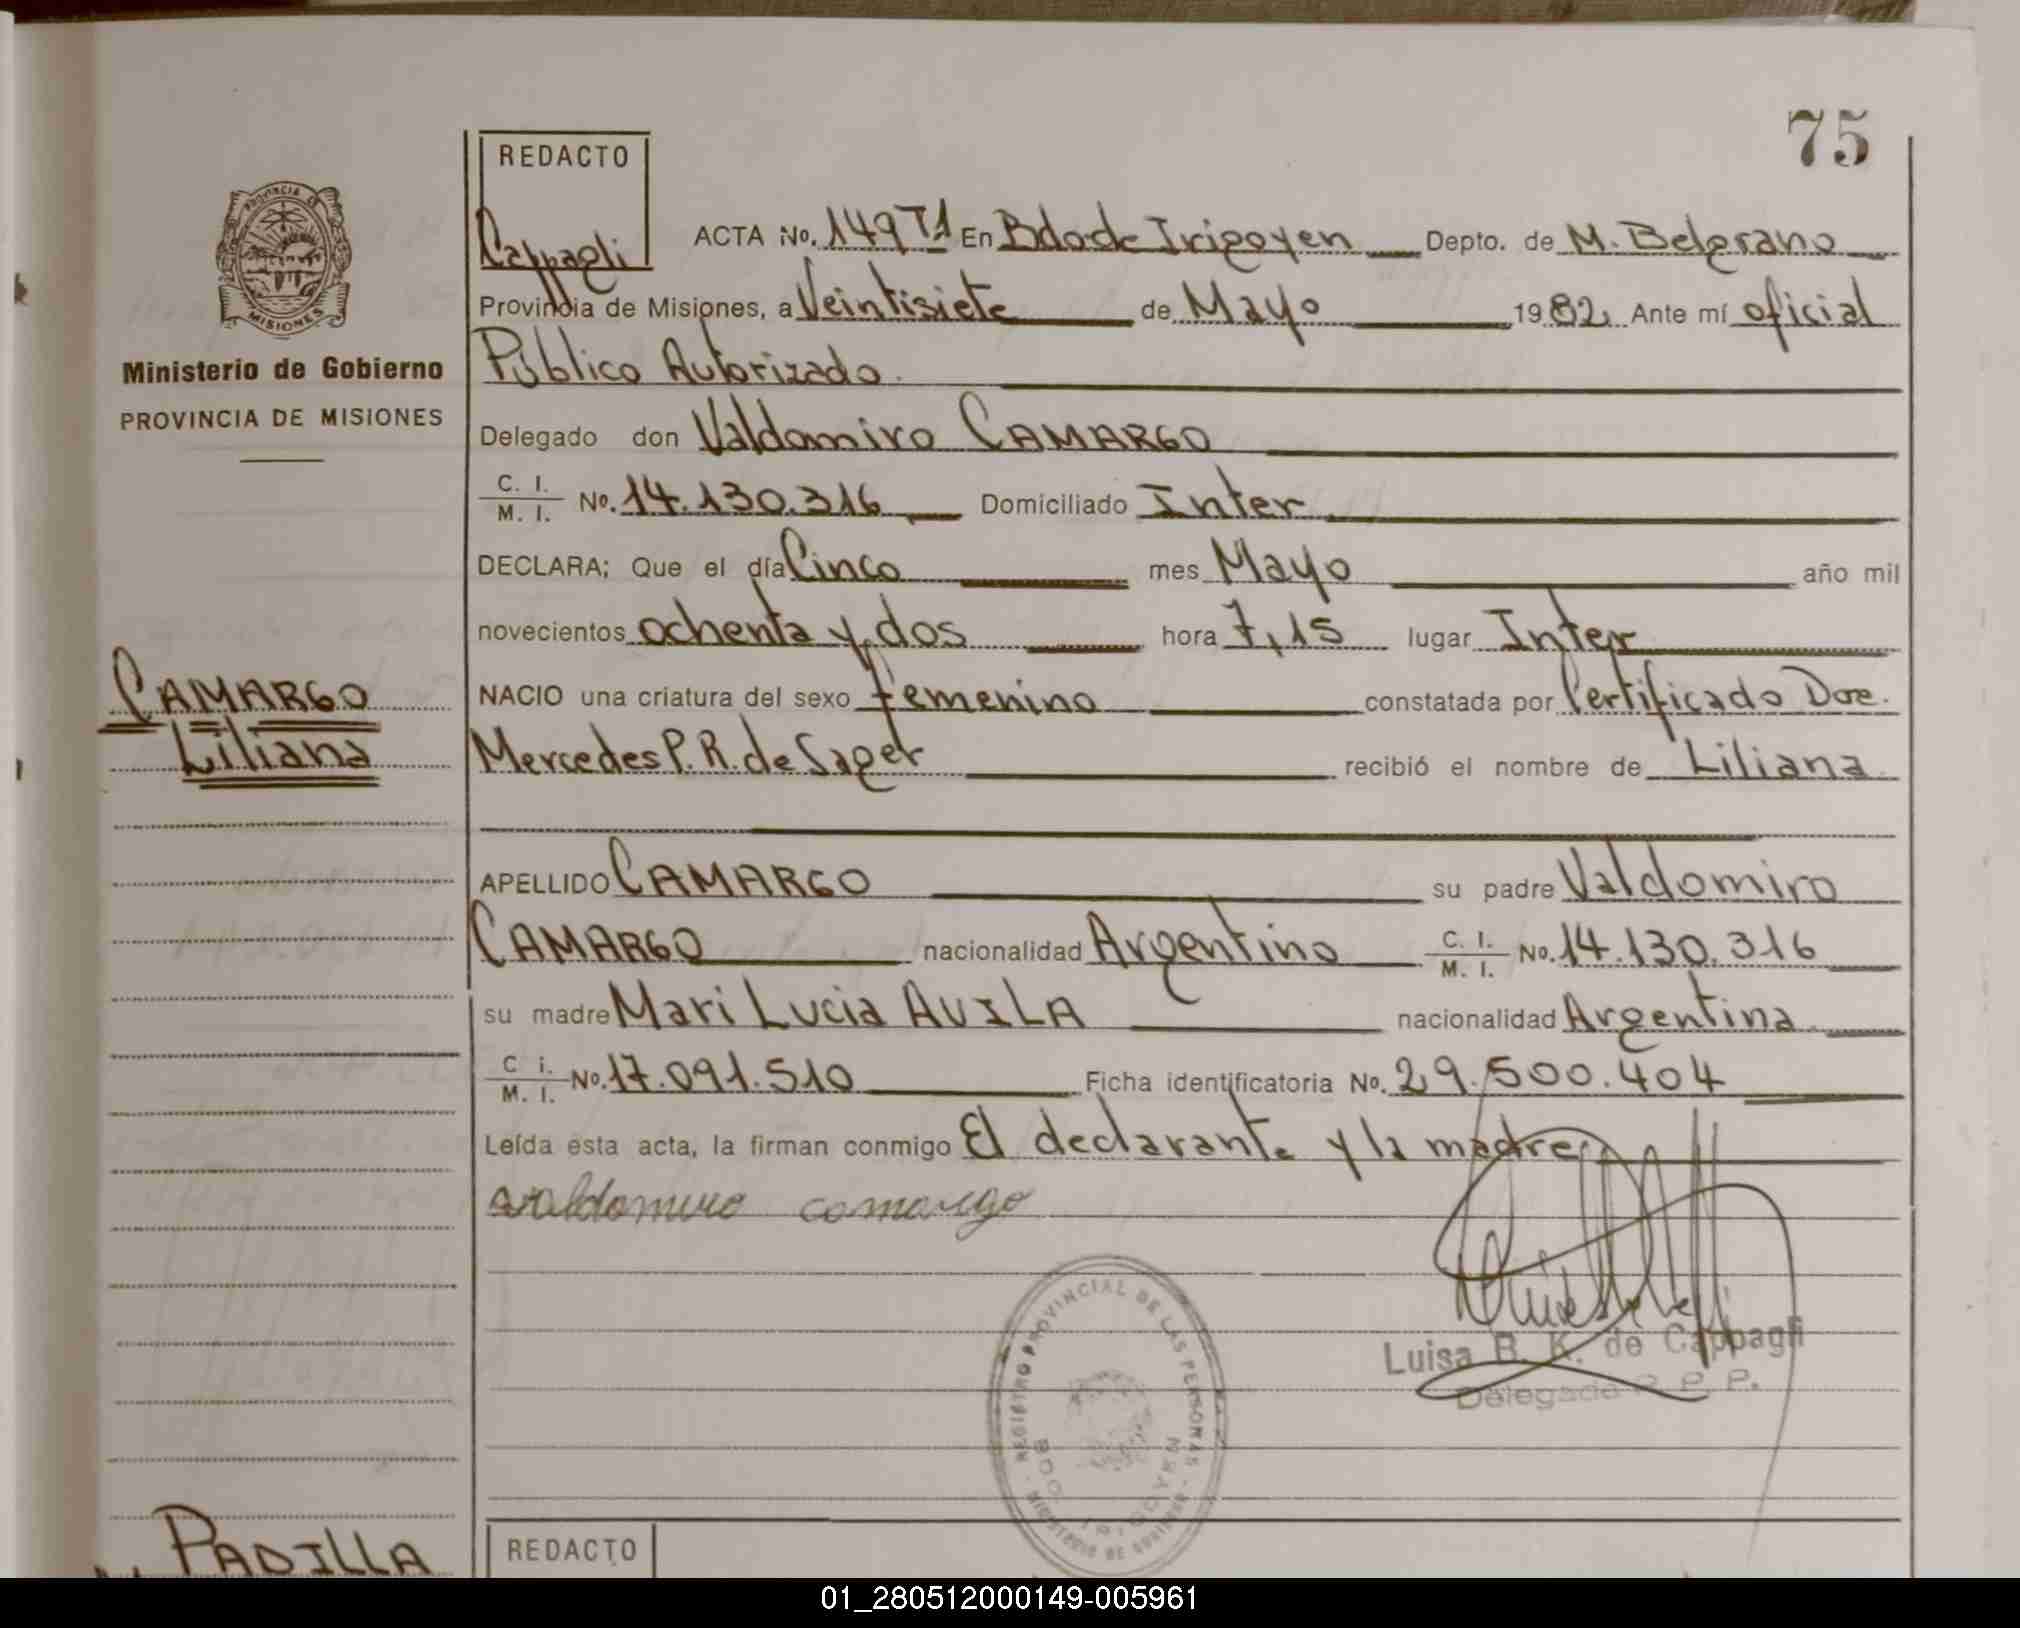 75
REDACTO
Cappagli
ACTA No. 149 T1 En Bdo de Irigoyen Depto. de M. Belgrano
Provincia de Misiones, a Veintisiete de Mayo 1982 Ante mí oficial
Público Autorizado.
Delegado don Valdomiro CAMARGO
C. I. / M. I. No. 14.130.316 Domiciliado Inter
DECLARA; Que el día Cinco mes Mayo año mil
novecientos ochenta y dos hora 7,15 lugar Inter
NACIO una criatura del sexo femenino constatada por Certificado Doc.
Mercedes P. R. de Sager recibió el nombre de Liliana
APELLIDO CAMARGO su padre Valdomiro
CAMARGO nacionalidad Argentino C. I. / M. I. No. 14.130.316
su madre Mari Lucia AVILA nacionalidad Argentina
C i. / M. I. No. 17.091.510 Ficha identificatoria No. 29.500.404
Leída esta acta, la firman conmigo El declarante y la madre
valdomiro camargo
Luisa R. K. de Cappagli
Delegada R. P. P.
REGISTRO PROVINCIAL DE LAS PERSONAS
MINISTERIO DE GOBIERNO
BDO. IRIGOYEN
REDACTO
PROVINCIA
MISIONES
Ministerio de Gobierno
PROVINCIA DE MISIONES
CAMARGO
Liliana
PADILLA
01_280512000149-005961